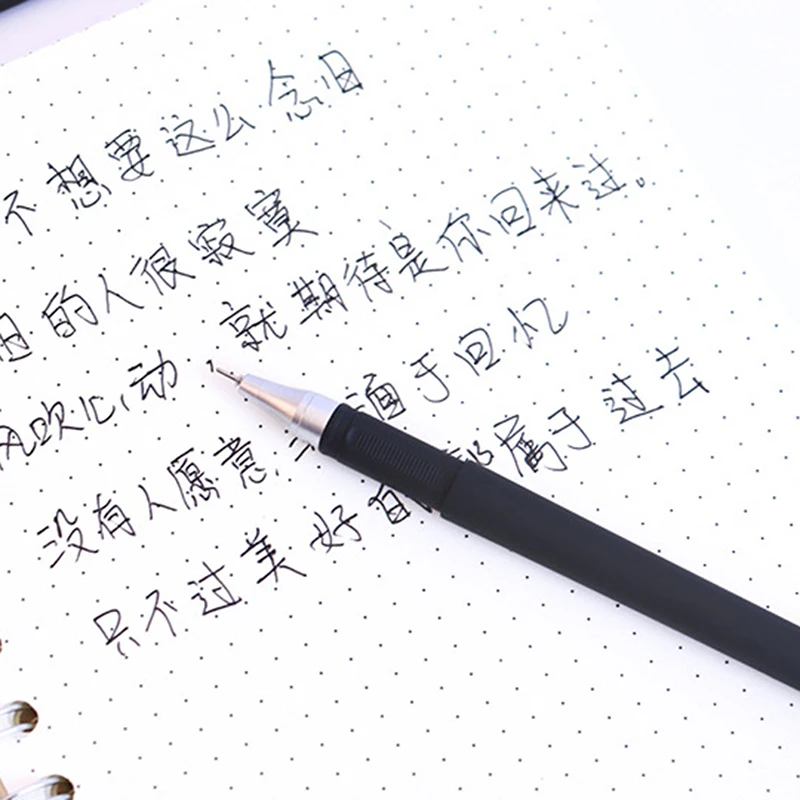 不想要这么念旧
旧的人很寂寞
风吹心动,就期待是你回来过。
没有人愿意 湎于回忆
只不过美好的都属于过去